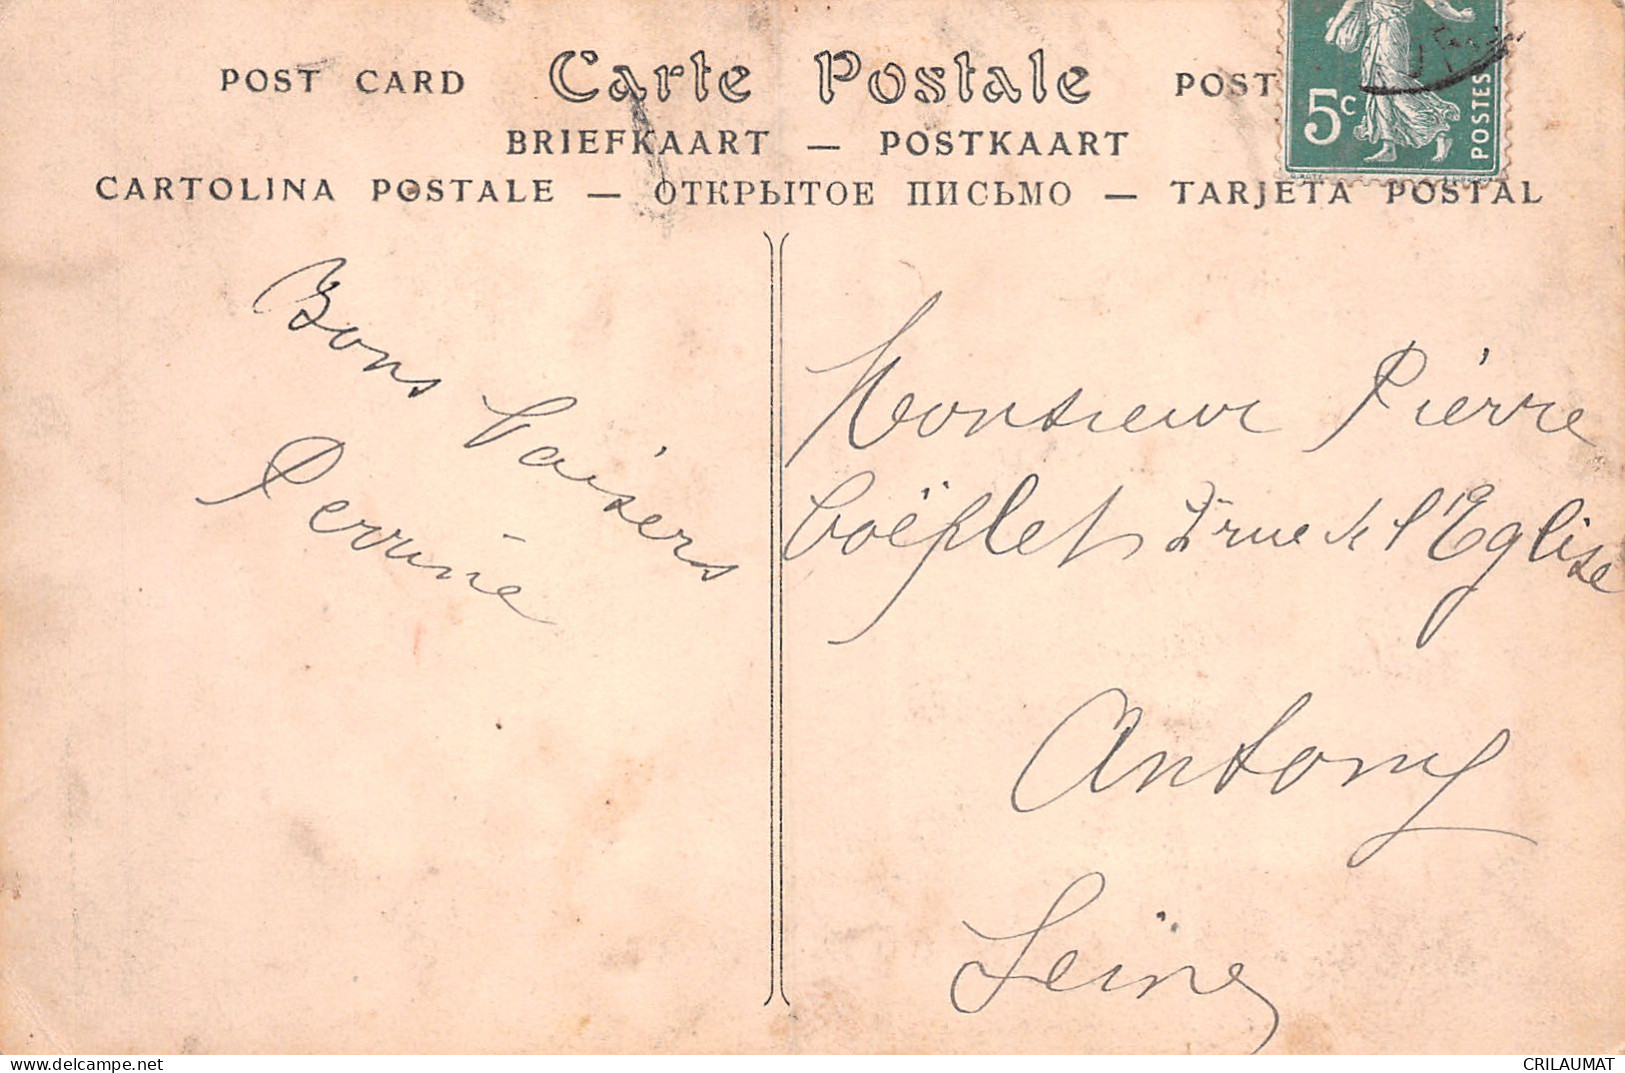 POST CARD Carte Postale POST
5c POSTES
BRIEFKAART — POSTKAART
CARTOLINA POSTALE — ОТКРЫТОЕ ПИСЬМО — TARJETA POSTAL
Bons baisers
Perrine
Monsieur Pierre
rue de l'Eglise
Antony
Seine
CRILAUMAT